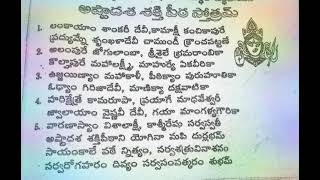 అష్టాదశ శక్తి పీఠ స్తోత్రమ్
1. లంకాయాం శాంకరీ దేవీ,కామాక్షీ కంచికాపురే
ప్రద్యుమ్నే శృంఖళాదేవీ చాముండీ క్రౌంచపట్టణే
2. అలంపురే జోగులాంబా, శ్రీశైలే భ్రమరాంబికా
కొల్హాపురే మహాలక్ష్మీ, మాహుర్యే ఏకవీరికా
3. ఉజ్జయిన్యాం మహాకాళీ, పీఠిక్యాం పురుహూతికా
ఓఢ్యాం గిరిజాదేవీ, మాణిక్యా దక్షవాటికా
4. హరిక్షేత్రే కామరూపా, ప్రయాగే మాధవేశ్వరీ
జ్వాలాయాం వైష్ణవీ దేవీ, గయా మాంగళ్యగౌరికా
5. వారణాస్యాం విశాలాక్షీ, కాశ్మీరేషు సరస్వతీ
అష్టాదశ శక్తిపీఠాని యోగినా మపి దుర్లభమ్
సాయంకాలే పఠే న్నిత్యం, సర్వశత్రువినాశనం
సర్వరోగహరం దివ్యం సర్వసంపత్కరం శుభమ్